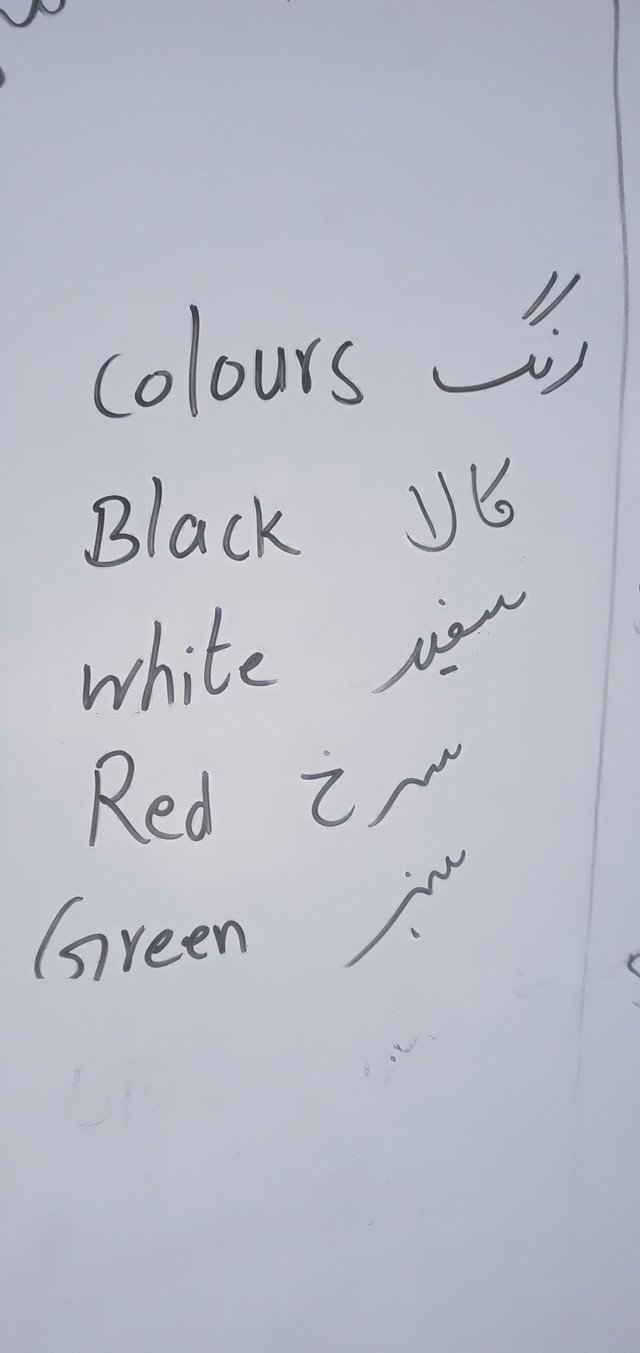 Colours رنگ
Black کالا
White سفید
Red سرخ
Green سبز